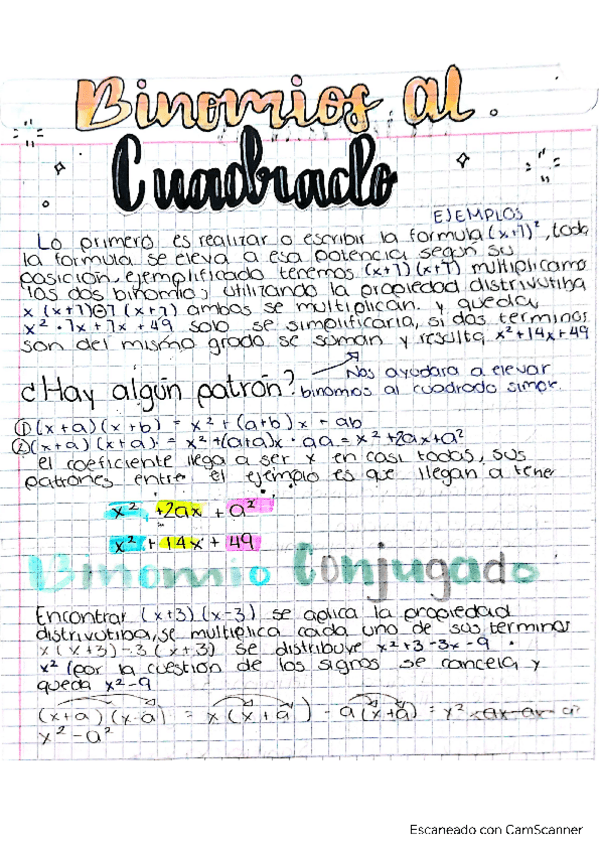 Binomios al
Cuadrado
EJEMPLOS
Lo primero es realizar o escribir la formula (x+7)², toda
la formula se eleva a esa potencia, según su
posición, ejemplificado tenemos (x+7) (x+7) multiplicamos
los dos binomios utilizando la propiedad distrivutiba
x (x+7)⊕7 (x+7) ambas se multiplican y queda,
x² + 7x + 7x + 49 solo se simplificaria, si dos terminos
son del mismo grado se suman y resulta x²+14x+49
Nos ayudara a elevar
¿Hay algún patrón? binomios al cuadrado simpr.
①(x+a)(x+b) = x²+(a+b)x + ab
②(x+a)(x+a) = x²+(a+a)x + aa = x²+2ax+a²
el coeficiente llega a ser x en casi todos, sus
patrones entre el ejemplo es que llegan a tener
x² + 2ax + a²
x² + 14x + 49
Binomio Conjugado
Encontrar (x+3)(x-3) se aplica la propiedad
distrivutiba, se multiplica cada uno de sus terminos
x(x+3)-3(x+3) se distribuye x²+3-3x-9
x² (por la cuestión de los signos se cancela, y
queda x²-9
(x+a)(x-a) = x(x+a) - a(x+a) = x²
x² - a²
Escaneado con CamScanner